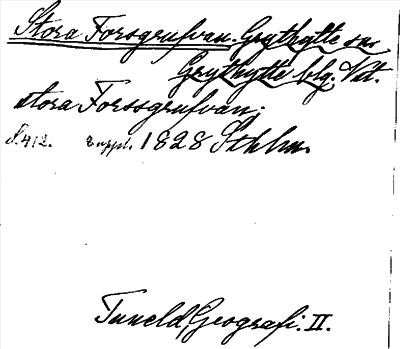 Stora Forsgrufvan. Grythytte sn
Grythytte blg. Vstm.
stora Forssgrufvan;
S. 412. Suppl. 1828 Sthlm.
Tuneld, Geografi. II.